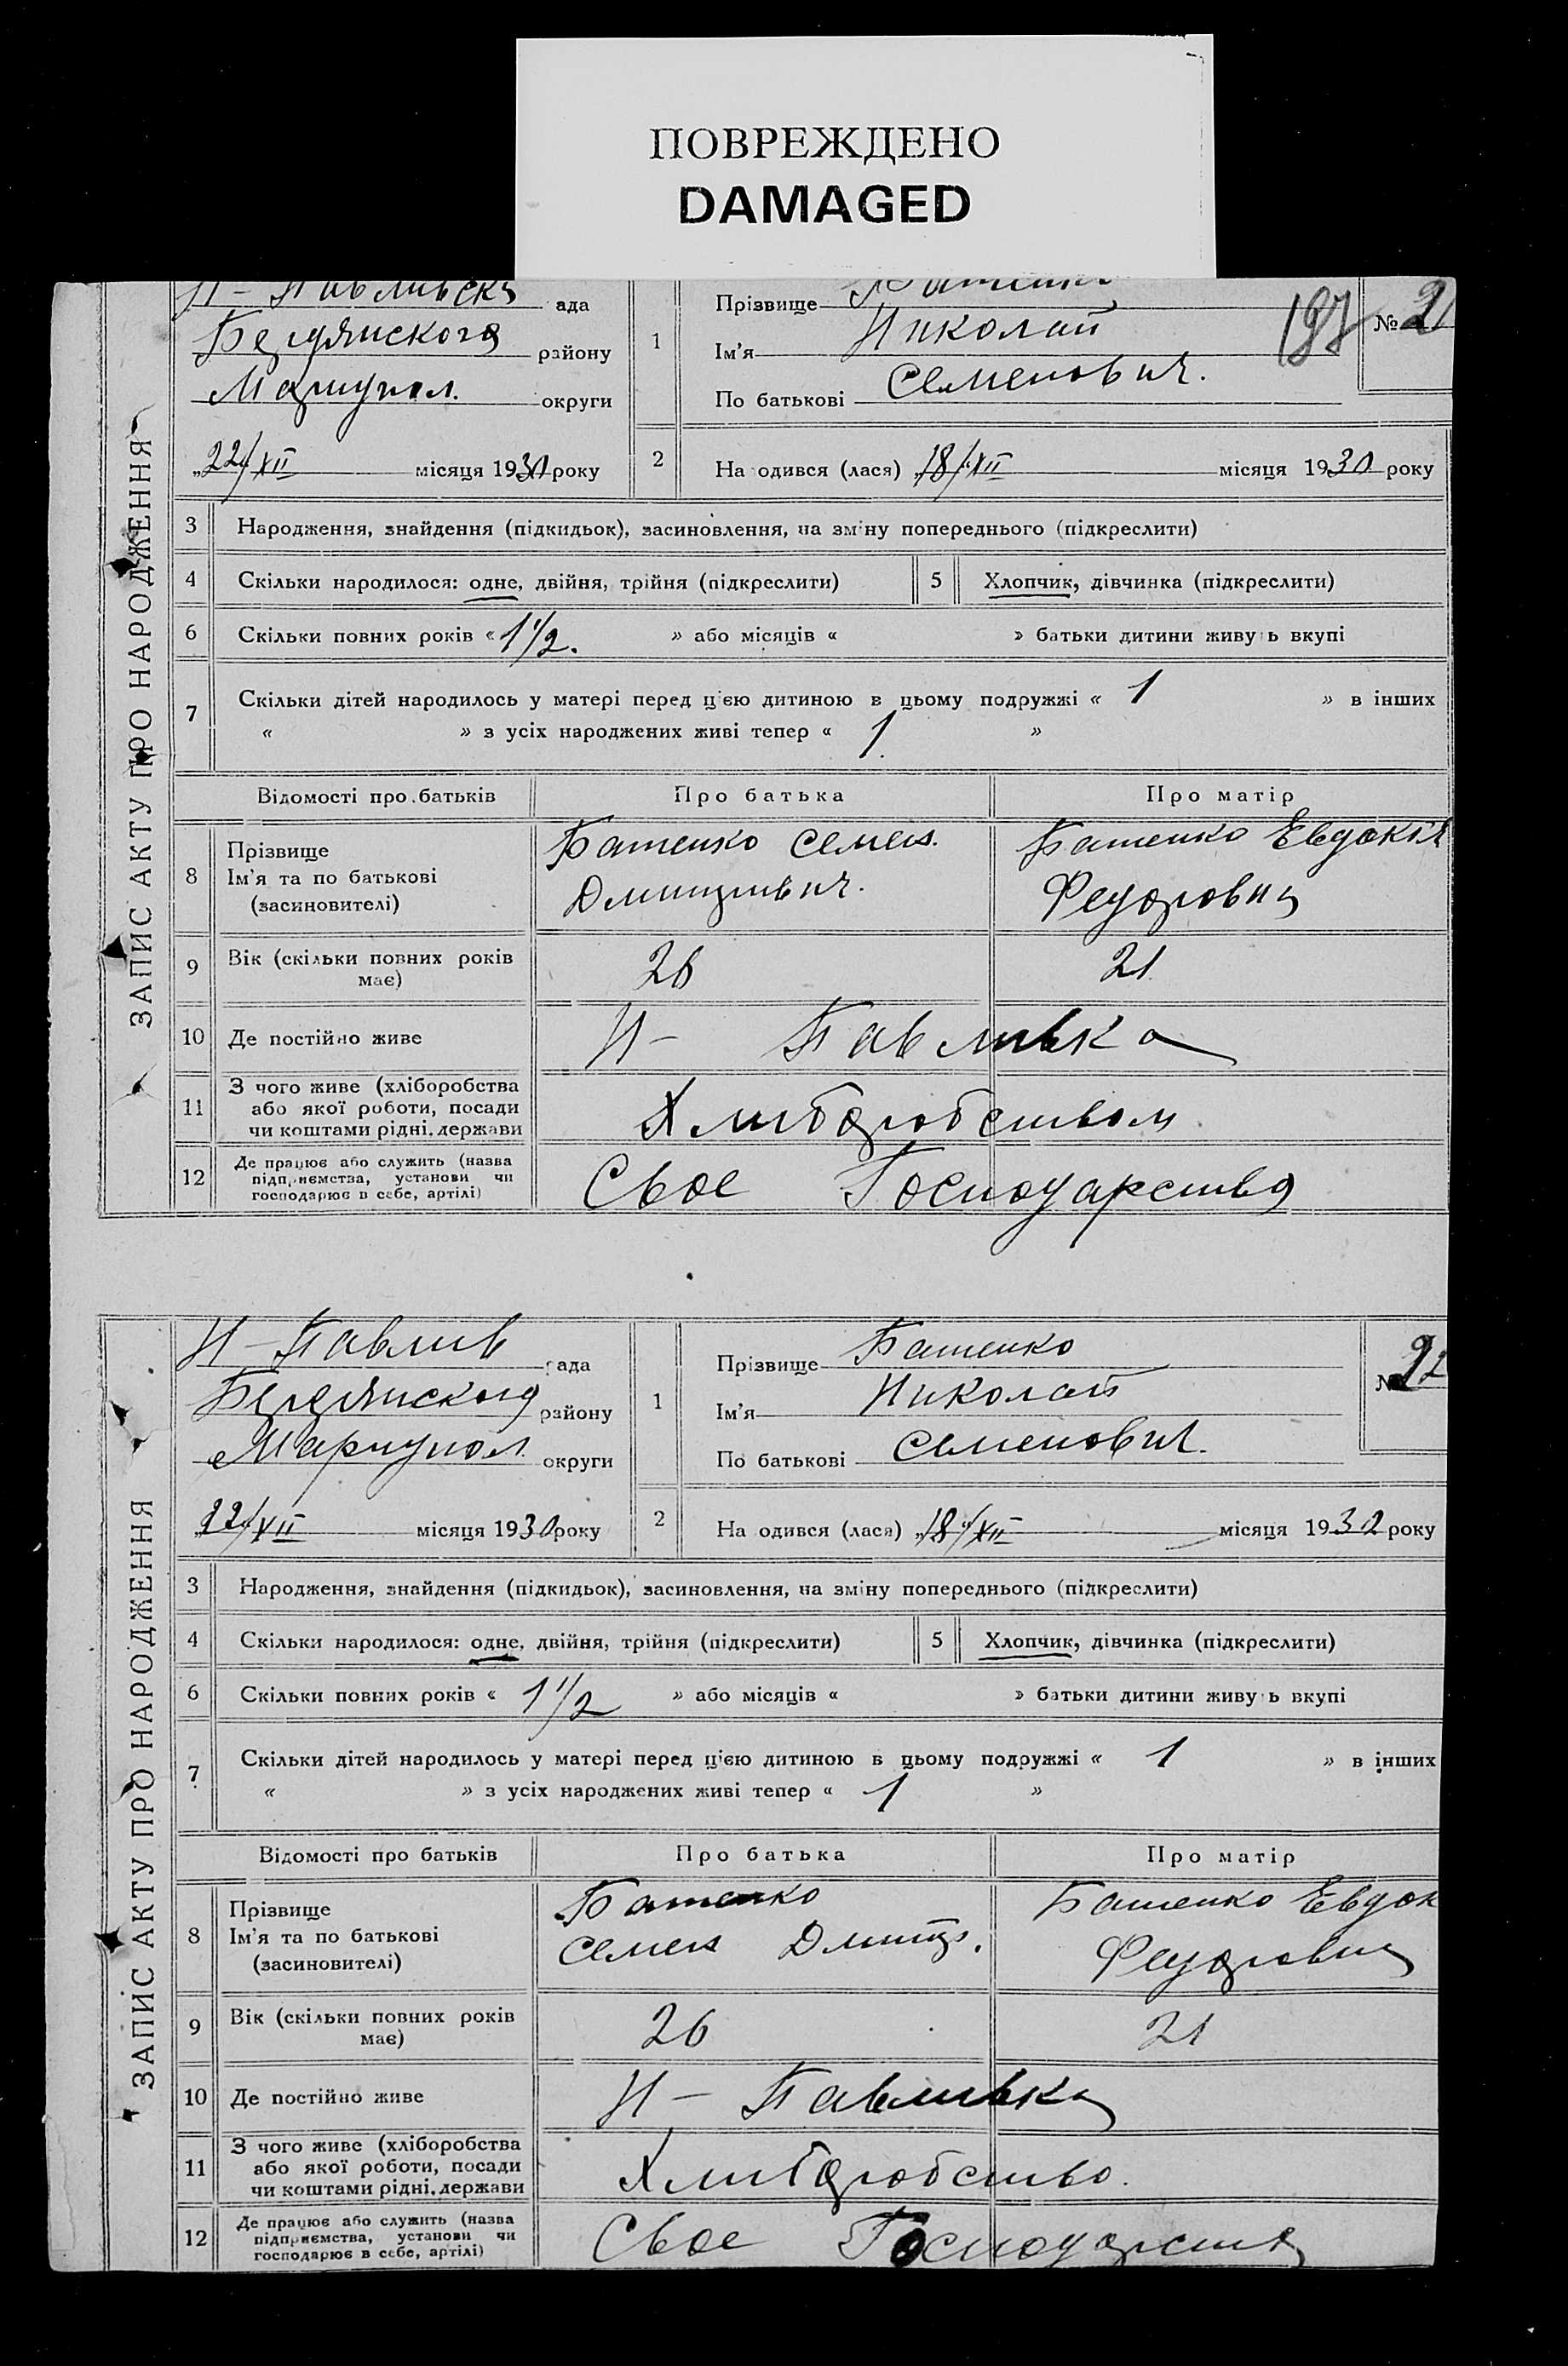 ПОВРЕЖДЕНО
DAMAGED
ЗАПИС АКТУ ПРО НАРОДЖЕННЯ
Н - Павливска ада
Бердянского району
Мариупол. округи
„22/XII місяця 1930 року
1
Прізвище Батенко
Ім'я Николай
По батькові Семенович.
197
№ 21
2
На одився (лася) „18/XII місяця 1930 року
3 Народження, знайдення (підкидьок), засиновлення, на зміну попереднього (підкреслити)
4 Скільки народилося: одне, двійня, трійня (підкреслити) 5 Хлопчик, дівчинка (підкреслити)
6 Скільки повних років « 1 1/2. » або місяців « » батьки дитини живу ь вкупі
7 Скільки дітей народилось у матері перед цією дитиною в цьому подружжі « 1 » в інших
« » з усіх народжених живі тепер « 1 »
Відомості про батьків Про батька Про матір
8 Прізвище
Ім'я та по батькові
(засиновителі)
Батенко Семен.
Дмитривич.
Батенко Евдокія
Федоровна
9 Вік (скільки повних років
має)
26 21
10 Де постійно живе Н - Павливка
11 З чого живе (хліборобства
або якої роботи, посади
чи коштами рідні, держави
Хлиборобством
12 Де працює або служить (назва
підприємства, установи чи
господарює в себе, артілі)
Свое Господарство
ЗАПИС АКТУ ПРО НАРОДЖЕННЯ
Н - Павлив рада
Бердянского району
Мариупол. округи
„22/XII місяця 1930 року
1
Прізвище Батенко
Ім'я Николай
По батькові Семенович.
№ 22
2
На одився (лася) „18/XII місяця 1930 року
3 Народження, знайдення (підкидьок), засиновлення, на зміну попереднього (підкреслити)
4 Скільки народилося: одне, двійня, трійня (підкреслити) 5 Хлопчик, дівчинка (підкреслити)
6 Скільки повних років « 1 1/2 » або місяців « » батьки дитини живу ь вкупі
7 Скільки дітей народилось у матері перед цією дитиною в цьому подружжі « 1 » в інших
« » з усіх народжених живі тепер « 1 »
Відомості про батьків Про батька Про матір
8 Прізвище
Ім'я та по батькові
(засиновителі)
Батенко
Семен Дмитр.
Батенко Евдок
Федоровна
9 Вік (скільки повних років
має)
26 21
10 Де постійно живе Н - Павливка
11 З чого живе (хліборобства
або якої роботи, посади
чи коштами рідні, держави
Хлиборобство.
12 Де працює або служить (назва
підприємства, установи чи
господарює в себе, артілі)
Свое Господарства